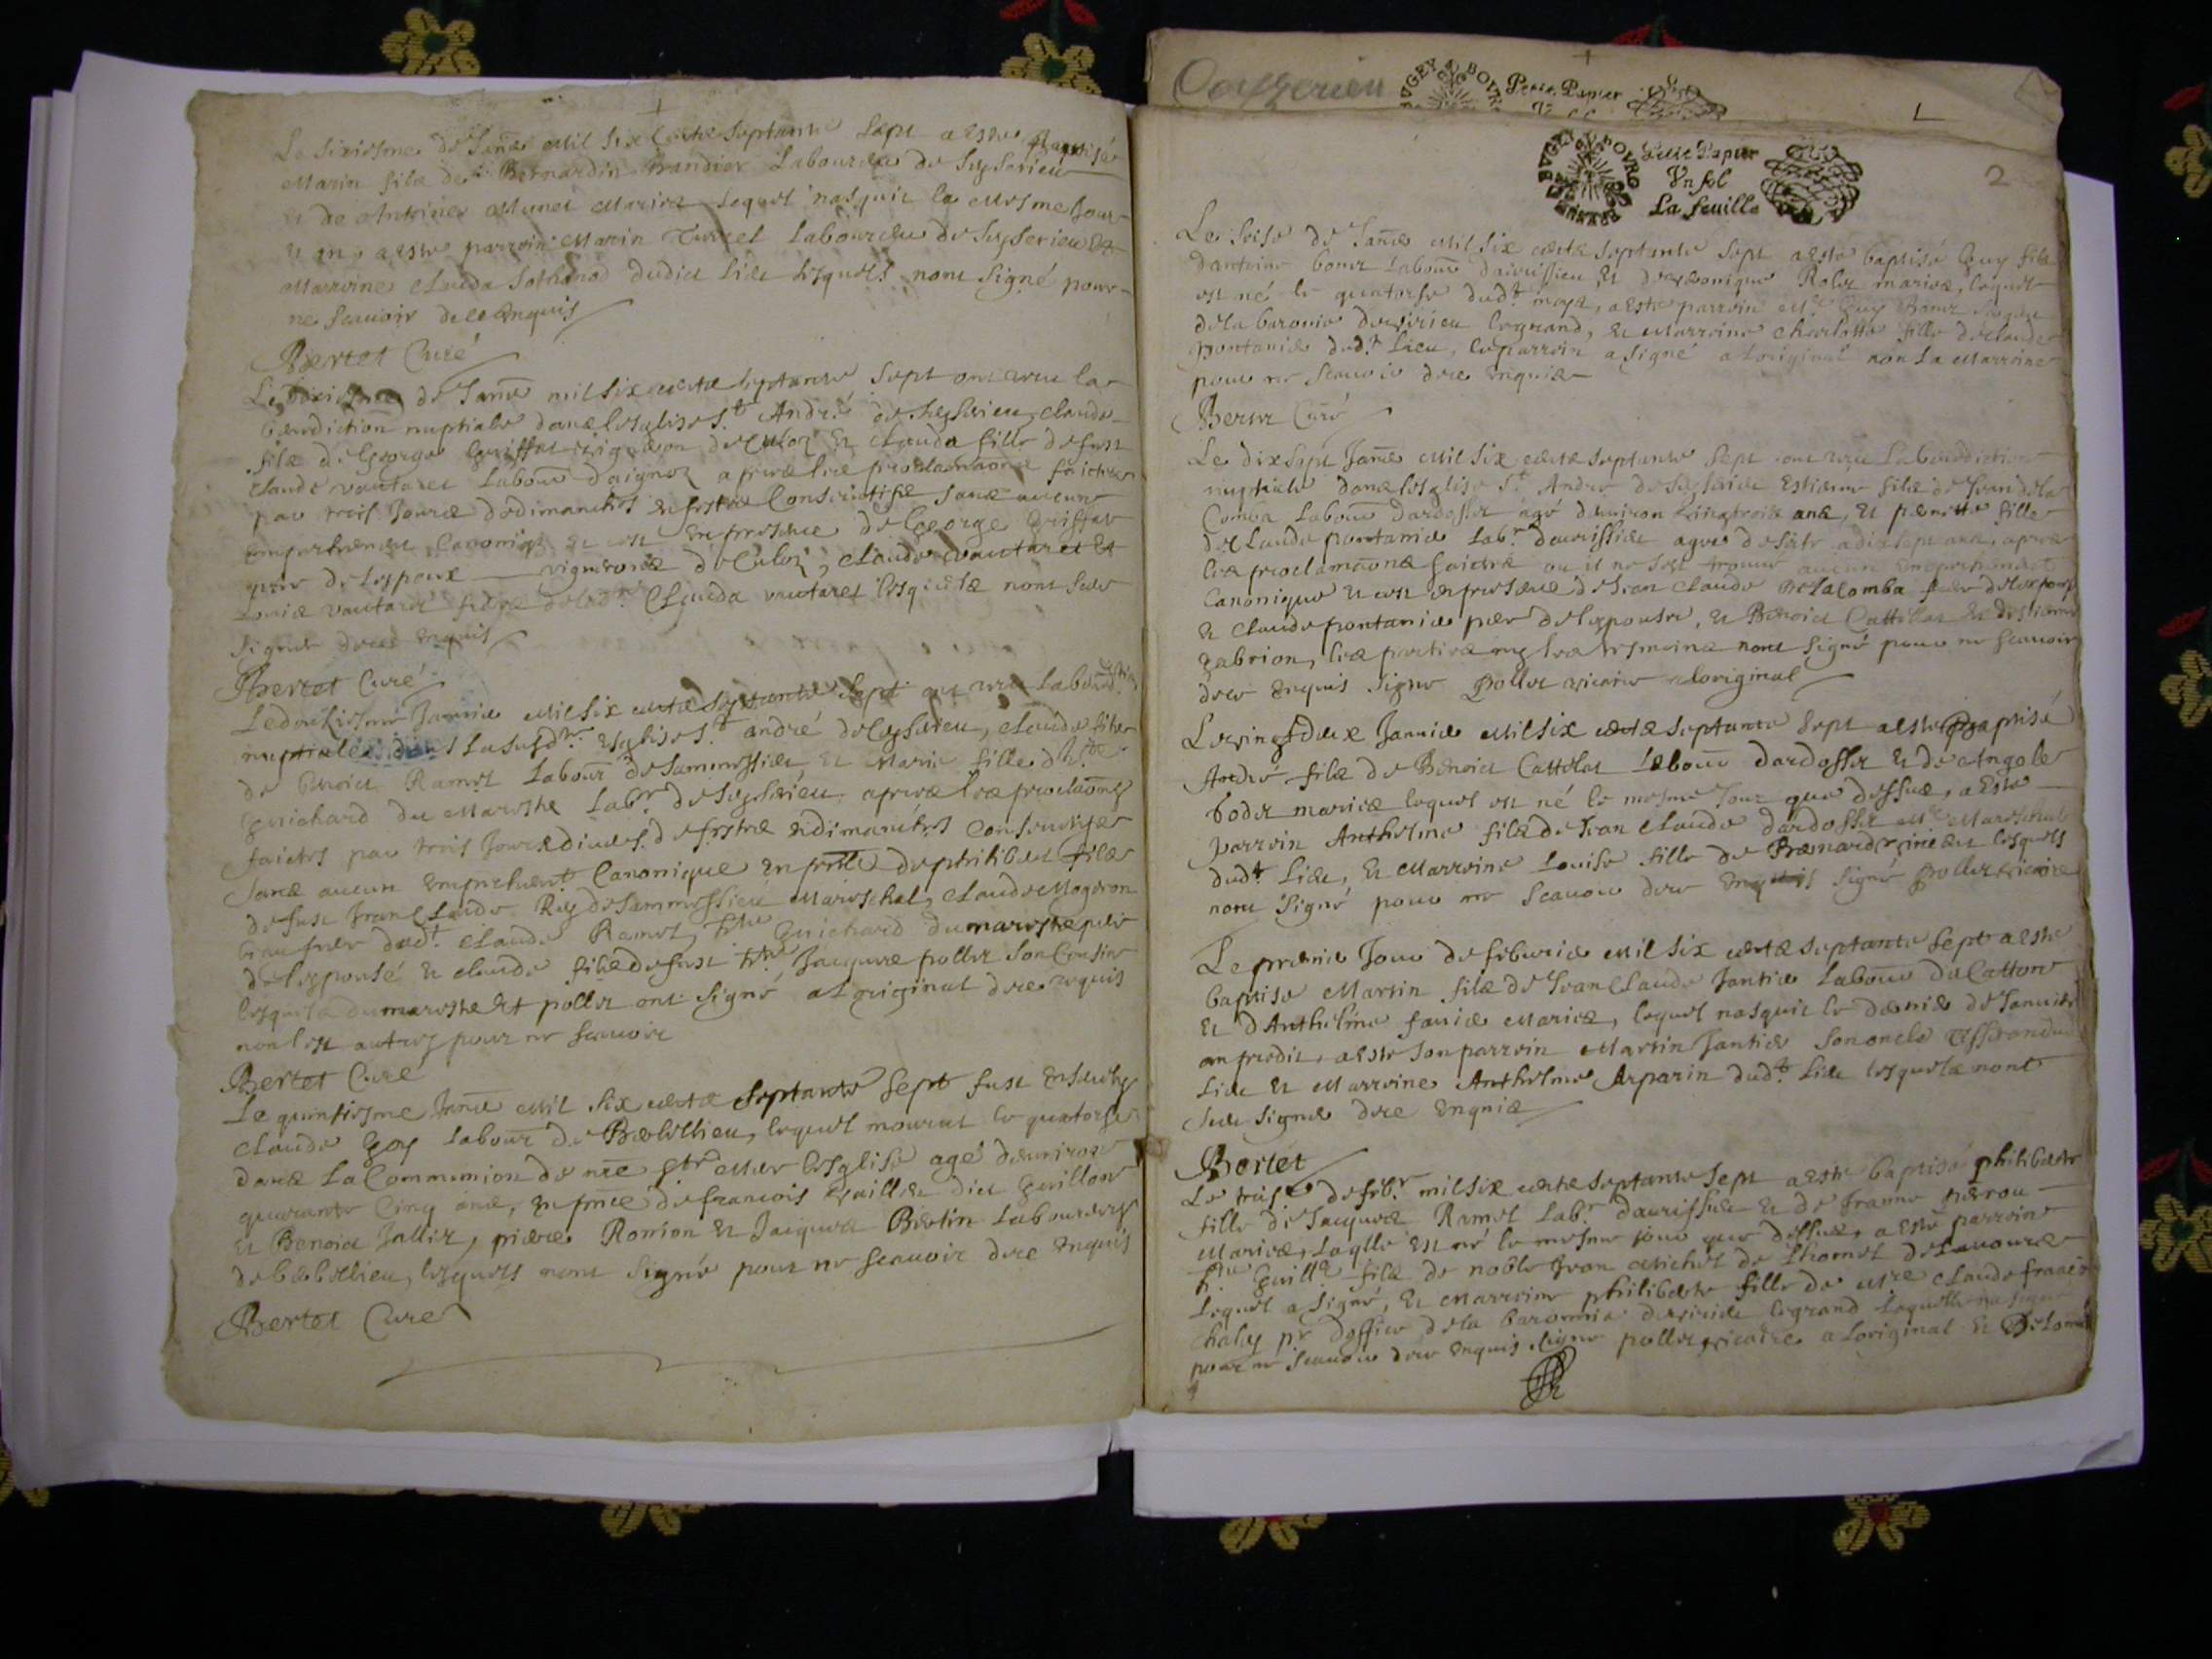 Le sixiesme de Janē Mil six cents septante sept a este baptisé
Marin fils de Bernardin Brandier Laboureur de Seyserieu
et de Antoine Munet Mariés lequel nasquit le mesme Jour
et an, a este parroin Marin Turcet Laboureur de Seyserieu Et
Marroine Clauda Sothonod dudict lieu lesquels nont signé pour
ne scauoir de ce enquis
Bertet Curé
Le dixiesme de Janē mil six cents septante sept ont receu la
benediction nuptiale dans lesglise St. André de Seyserieu, Claude
fils de George Griffat vigneron de Culoz et Clauda fille de fust
Claude vautaret Labour̄ daignoz apres les proclamaõns faictes
par trois Jours de dimanches et festes Consecutifs sans aucun
empechement Canonique et ce en presence de George Griffat
pere de lespoux vignerons de Culoz, Claude vautaret Et
Louis vautaret freres de lad. Clauda vautaret lesquels nont sceu
signer de ce enquis
Bertet Curé
Le douziesme Januier Mil six cents septante sept ont receu la bened.
nuptiale dans la susd.te Esglise St. andré de Ceyserieu, Claude fils
de Benoict Ramel Labour̄ de Sammessieu et Marie fille de
Guichard du Mareshe Lab.r de Seyserieu apres les proclaõns
faictes par trois Jours diues de festes et dimanches Consecutifs
sans aucun empechement Canonique en pñce de philibert fils
de fust Jean Claude Rey de Sammessieu Mareschal, Claude Mogeron
beau frere dud.t Claude Ramel, Guichard dumareshe pere
de lespousé et Claude fils de fust Jacques pollet son Cousin
lesquels dumareshe et pollet ont signé a loriginal de ce requis
non les autres pour ne scauoir
Bertet Curé
Le quinsiesme Janē Mil six cents septante sept fust enseuely
Claude Goy Labour̄ de Beabellieu, lequel mourut le quatorse
dans La Communion de nre Ste Mere lesglise agé denuiron
quarante cinq ans, en pñce de francois Guillet dict Guillon
et Benoict Jallix, pierre Ronion et Jacques Bertin Laboureurs
de beabellieu, lesquels nont signé pour ne scauoir de ce enquis
Bertet Curé
BVGEY BOVR
Petit Papier
BVGEY BOVRG
Petit Papier
Vn sol
La feuille
2
Le seise de Janē Mil six cents septante sept a esté baptisé Guy fils
dantoine bonet Labour̄ daurissieu et de veronique Rolet mariés, lequel
est né le quatorse dud.t moys, a este parroin Mr. Guy Bonet
de la baronie de virieu legrand, et Marroine Charlotte fille de Claude
pontanie dud.t Lieu, le parroin a signé a loriginal non la Marroine
pour ne scauoir de ce enquis
Bertet Curé
Le dix sept Janē Mil six cents septante sept ont receu La benediction
nuptiale dans lesglise St. André de Seyserieu Estienne fils de Jean dela
Comba Labour̄ dardosset agé denuiron vingtrois ans, et pernette fille
de Claude pontanie Lab.r daurissieu agee de seise a dix sept ans, apres
les proclamaõns faictes ou il ne sest trouué aucun empechement
Canonique et ce en presence de Jean Claude Delacomba pere de lespoux
et Claude pontanie pere de lespouse, et Benoict Cattilat et destienne
gabrion, les parties ny les tesmoins nont signé pour ne scauoir
de ce enquis signé pollet vicaire a loriginal
Le vingtdeux Januier Mil six cents septante sept a este baptisé
André fils de Benoict Cattelat Labour̄ dardosset et de Angele
bodet mariés lequel est né le mesme Jour que dessus, a este
parroin Anthelme fils de Jean Claude dardosset Mr. Mareschal
dud.t Lieu, et Marroine Louise fille de Bernard vincent lesquels
nont signé pour ne scauoir de ce enquis signé pollet vicaire
Le premier Jour de feburier Mil six cents septante sept a este
baptisé Martin fils de Jean Claude Jantie Labour̄ de Catton
et dAnthelme fauie Mariés, lequel nasquit le dernier de Januier
an predit, a este son parroin Martin Jantie son oncle Tisserand du
Lieu et Marroine Anthelme Arparin dud.t Lieu lesquels nont
sceu signer de ce enquis
Bertet
Le trois de feb.r mil six cents septante sept a esté baptisé philiberte
fille de Jacques Ramel Lab.r daurissieu et de franne perrou
Mariés, Laqlle est né le mesme jour que dessus, a esté parroin
Guill.e fils de noble Jean Michel de Lhomel de Lauoure
lequel a signé, et Marroine philiberte fille de Mre. Claude francois
Chaley pr. doffice de la baronnie de virieu legrand laquelle na signé
pour ne scauoir de ce enquis signé pollet vicaire a loriginal et Delomel